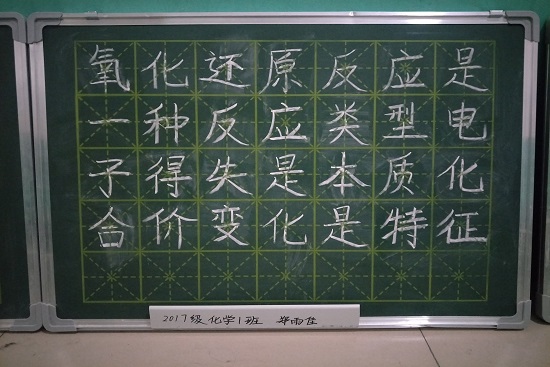 氧化还原反应是
一种反应类型电
子得失是本质化
合价变化是特征
2017级化学1班